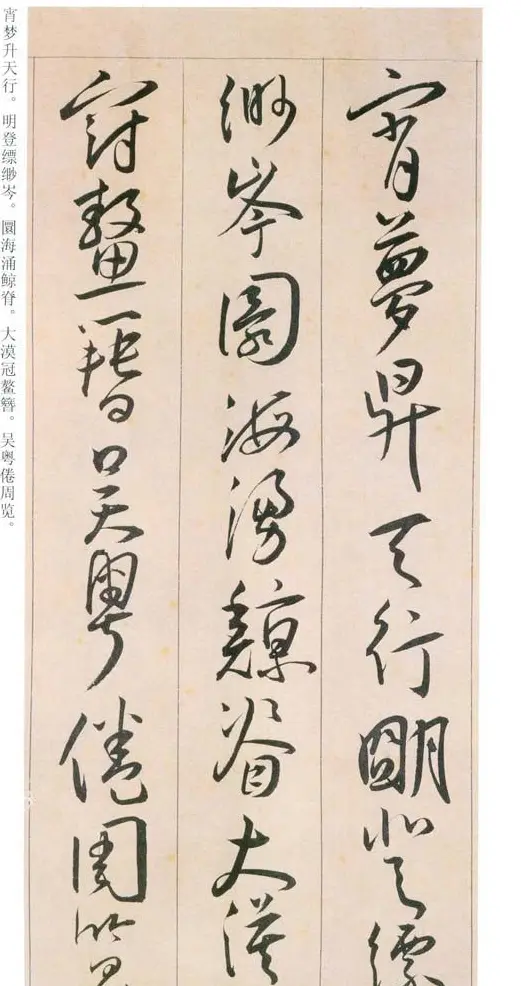 宵夢昇天行朙登縹
緲岑圜海湧鯨脊大漠
冠鼇簪吳粵倦周覽
宵梦升天行。明登缥缈岑。圜海涌鲸脊。大漠冠鳌簪。吴粤倦周览。